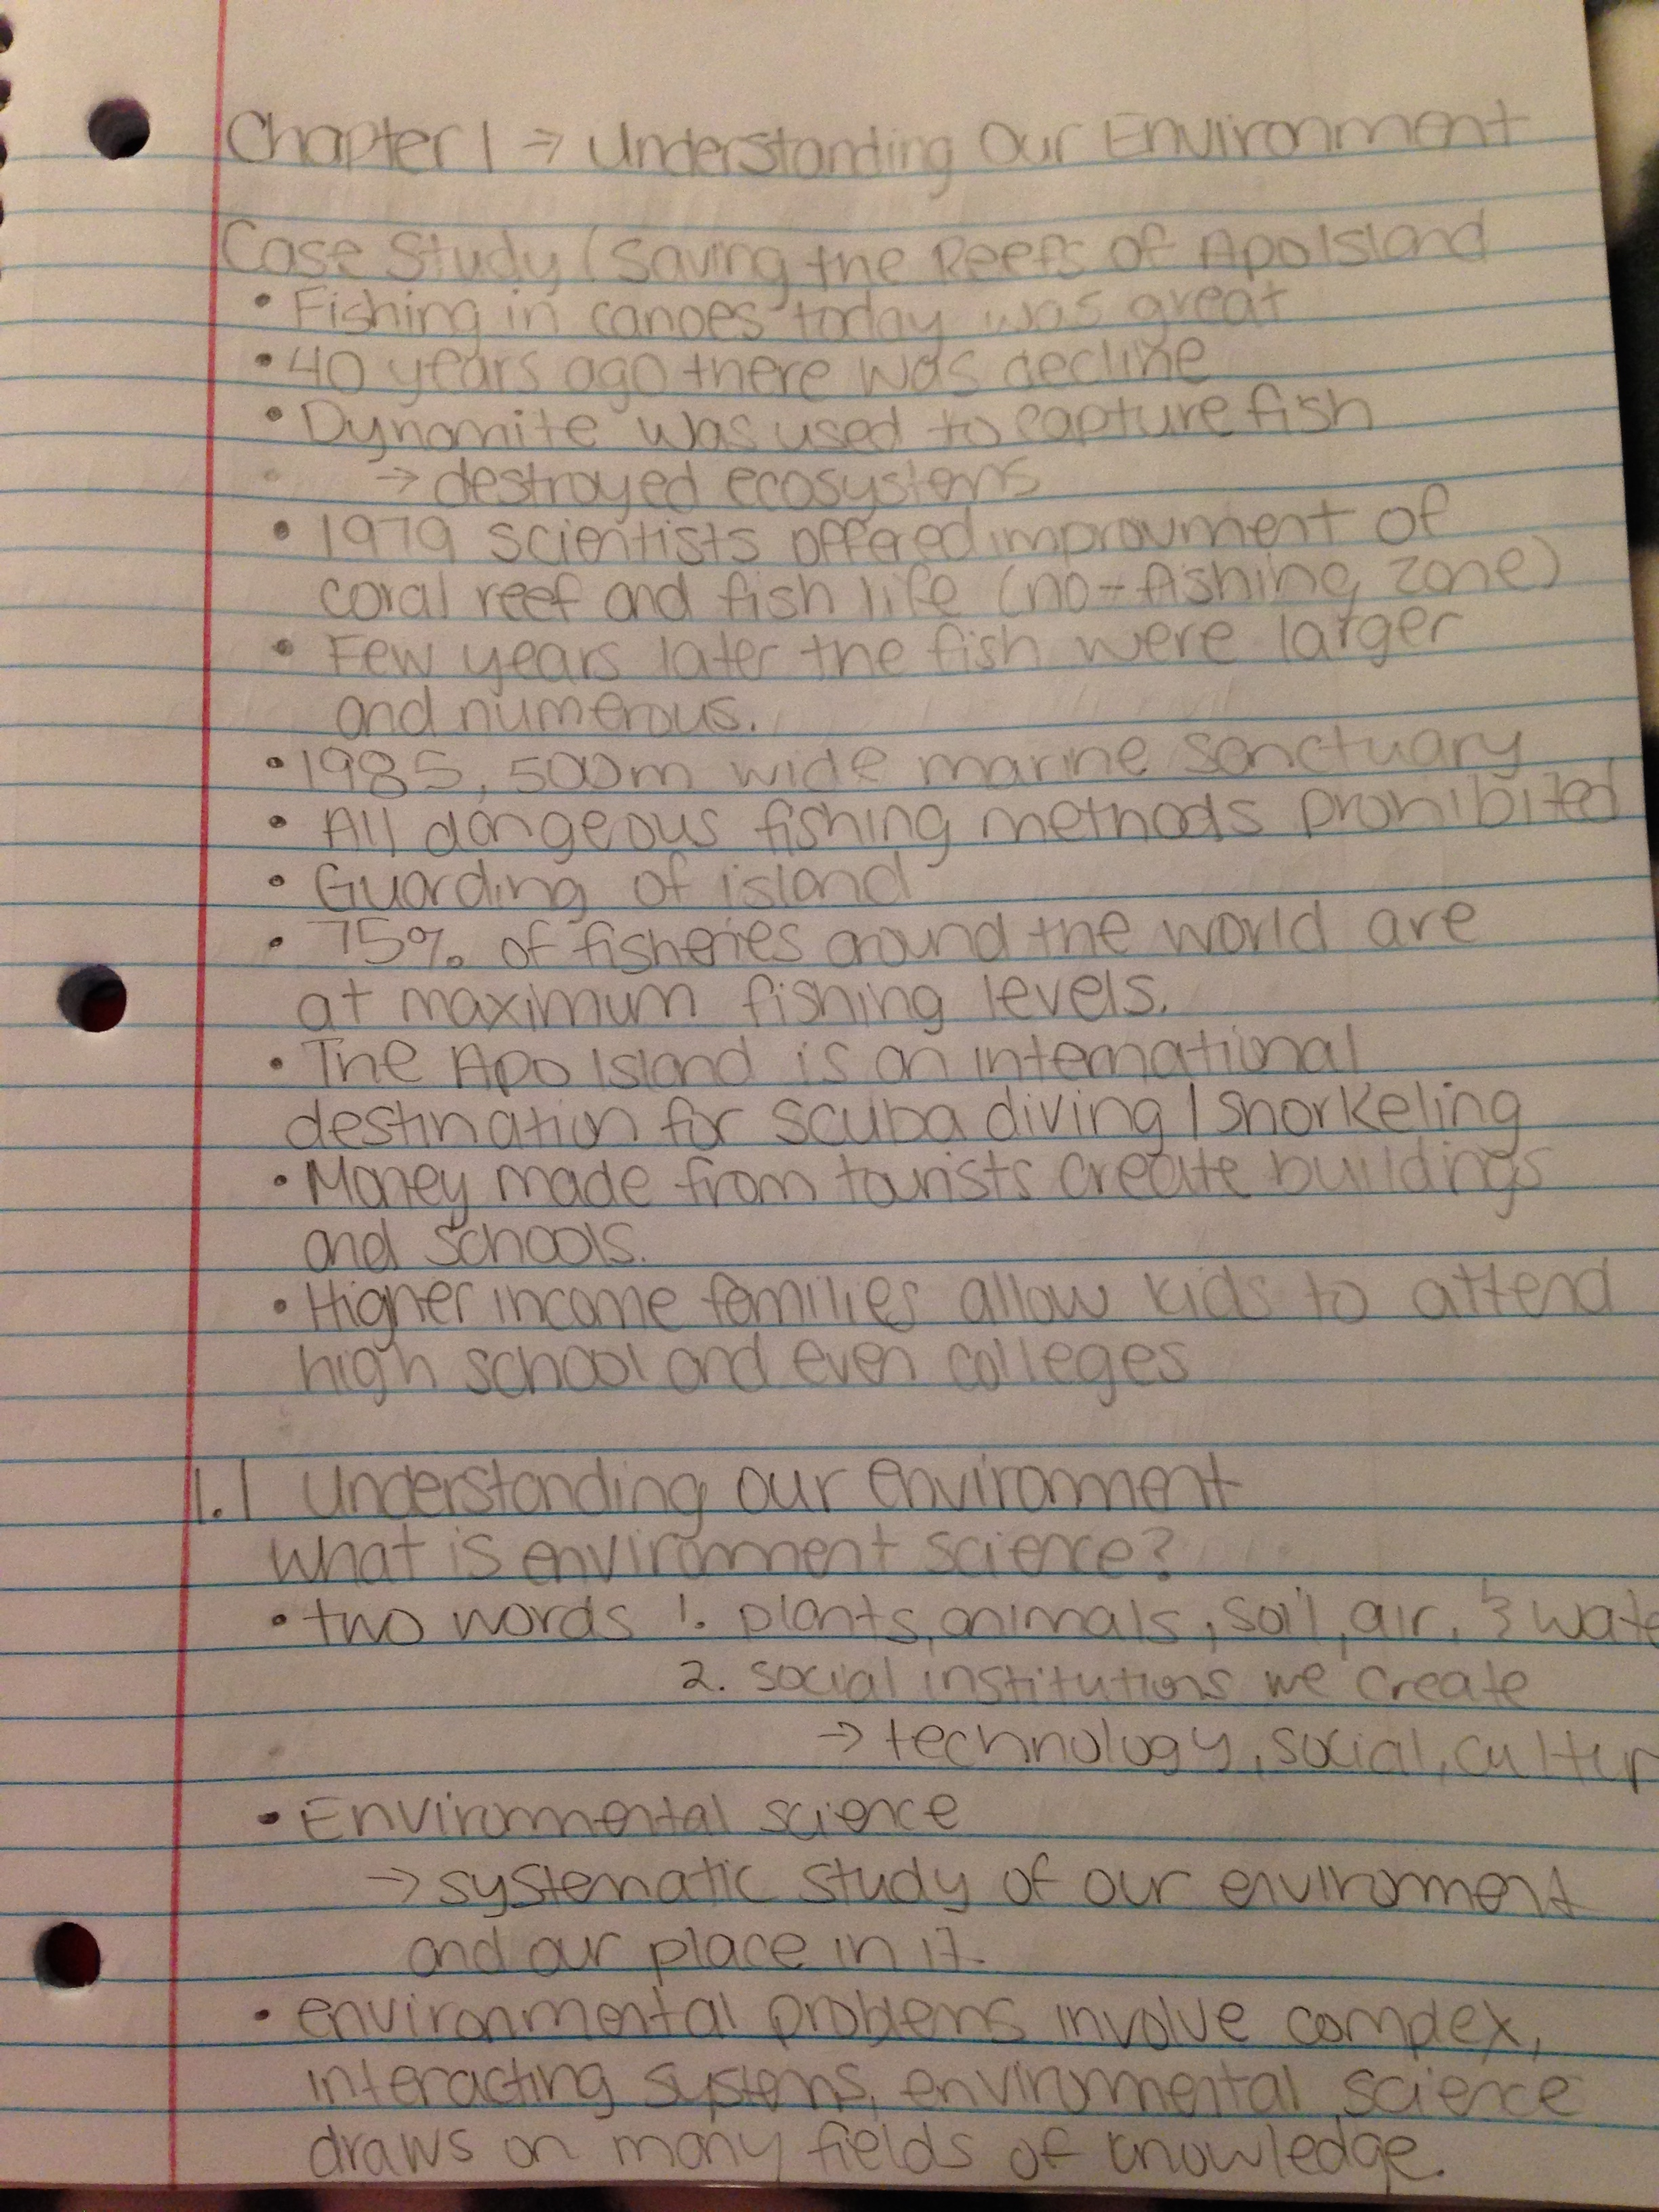 Chapter 1 → Understanding Our Environment
Case Study (Saving the Reefs of Apo Island
• Fishing in canoes today was great
• 40 years ago there was decline
• Dynomite was used to capture fish
→ destroyed ecosystems
• 1979 scientists offered improvment of
coral reef and fish life (no-fishing zone)
• Few years later the fish were larger
and numerous.
• 1985, 500m wide marine sanctuary
• All dangeous fishing methods prohibited
• Guarding of island
• 75% of fisheries around the world are
at maximum fishing levels.
• The Apo Island is an international
destination for scuba diving / snorkeling
• Money made from tourists create buildings
and schools.
• Higher income families allow kids to attend
high school and even colleges
1.1 Understanding our environment
What is environment science?
• two words 1. plants, animals, soil, air, & wate
2. social institutions we create
→ technology, social, cultur
• Environmental science
→ systematic study of our environment
and our place in it.
• environmental problems involve complex,
interacting systems, environmental science
draws on many fields of knowledge.